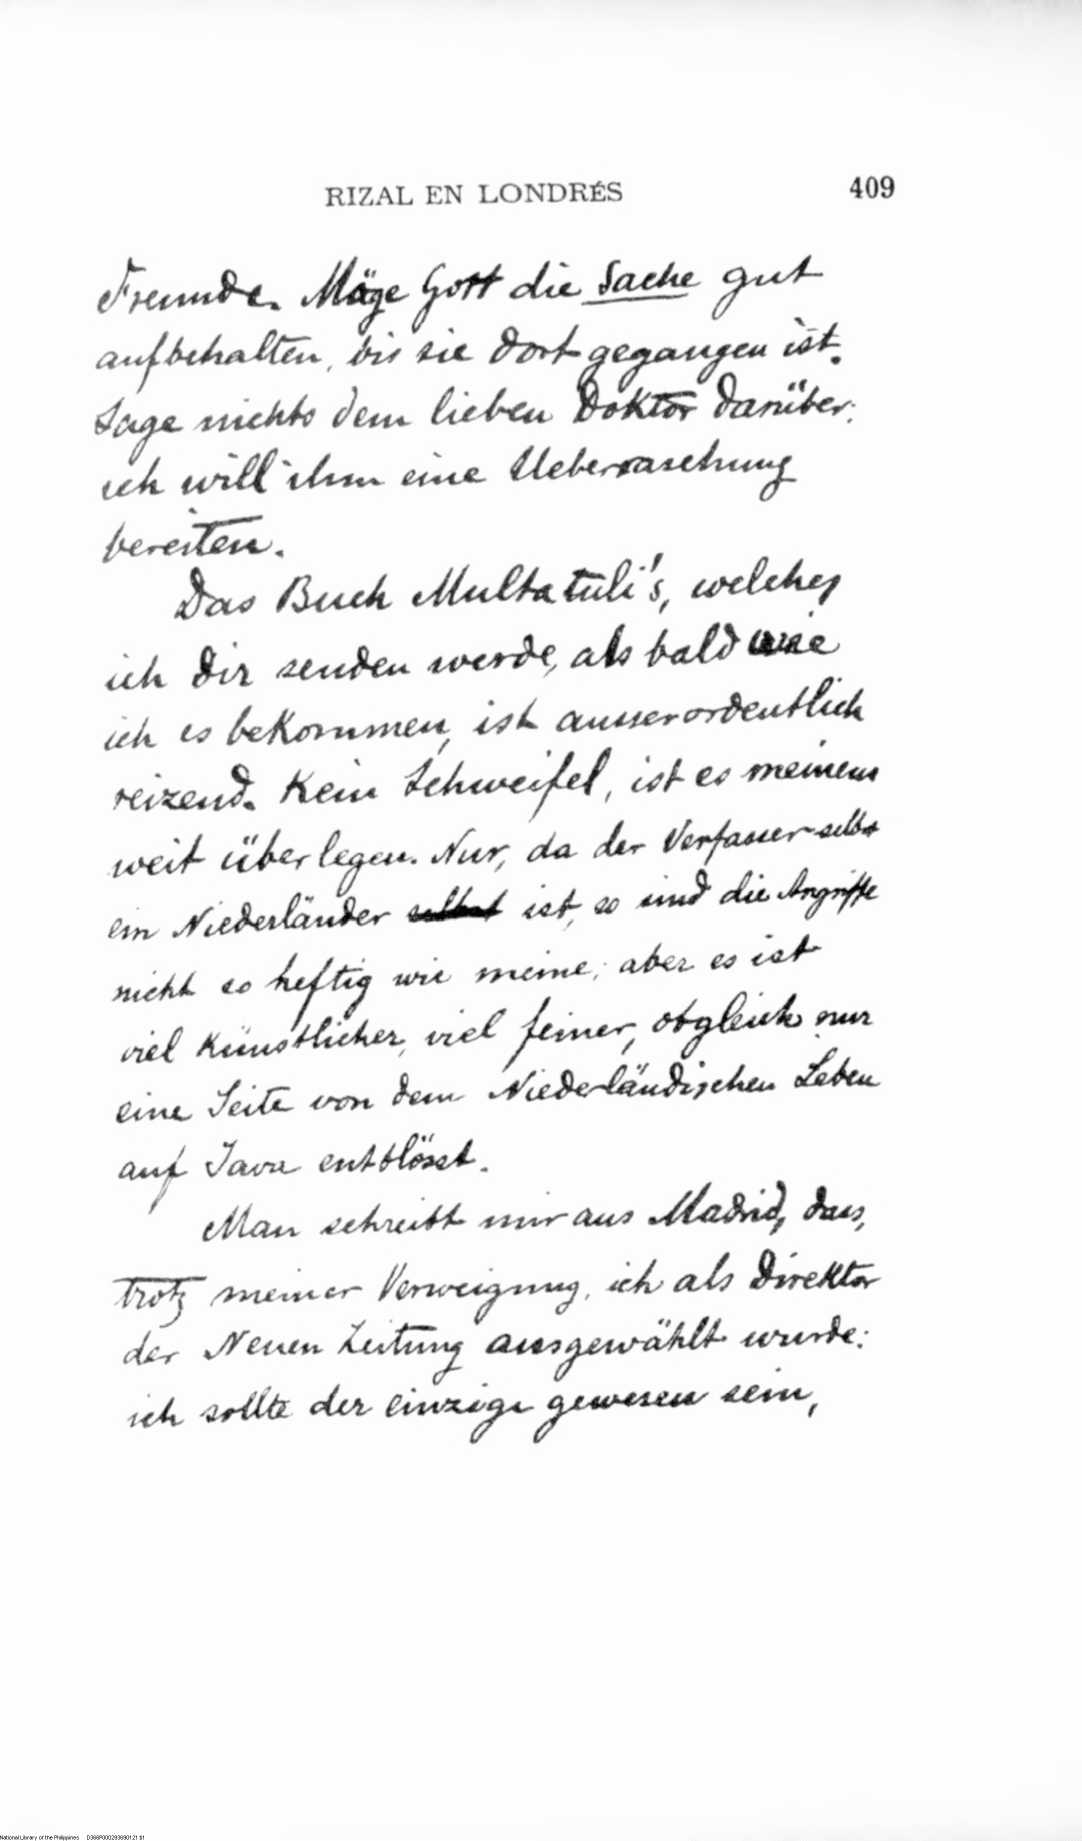 RIZAL EN LONDRÉS 409
Freunde. Möge Gott die Sache gut
aufbehalten, bis sie dort gegangen ist.
Sage nichts dem lieben Doktor darüber:
ich will ihm eine Ueberraschung
bereiten.
Das Buch Multatuli's, welches
ich dir senden werde, als bald wie
ich es bekommen, ist ausserordentlich
reizend. Kein Schweifel, ist es meinem
weit überlegen. Nur, da der Verfasser selbst
ein Niederländer selbst ist, so sind die Angriffe
nicht so heftig wie meine; aber es ist
viel künstlicher, viel feiner, obgleich nur
eine Seite von dem Niederländischen Leben
auf Java entblösst.
Man schreibt mir aus Madrid, dass,
trotz meiner Verweignung, ich als Direktor
der Neuen Zeitung ausgewählt wurde:
ich sollte der einzige gewesen sein,
National Library of the Philippines